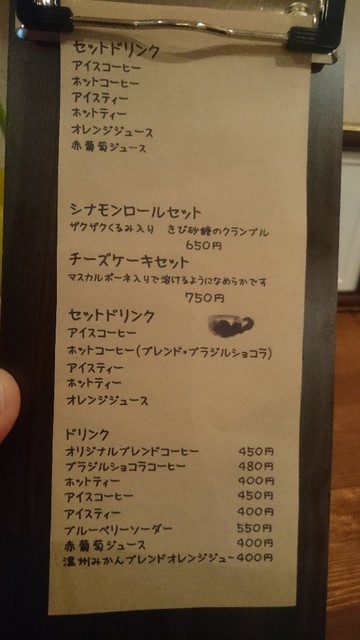 セットドリンク
アイスコーヒー
ホットコーヒー
アイスティー
ホットティー
オレンジジュース
赤葡萄ジュース
シナモンロールセット
ザクザクくるみ入り きび砂糖のクランブル
650円
チーズケーキセット
マスカルポーネ入りで溶けるようになめらかです
750円
セットドリンク
アイスコーヒー
ホットコーヒー(ブレンド・ブラジルショコラ)
アイスティー
ホットティー
オレンジジュース
ドリンク
オリジナルブレンドコーヒー 450円
ブラジルショコラコーヒー 480円
ホットティー 400円
アイスコーヒー 450円
アイスティー 400円
ブルーベリーソーダー 550円
赤葡萄ジュース 400円
温州みかんブレンドオレンジジュー400円